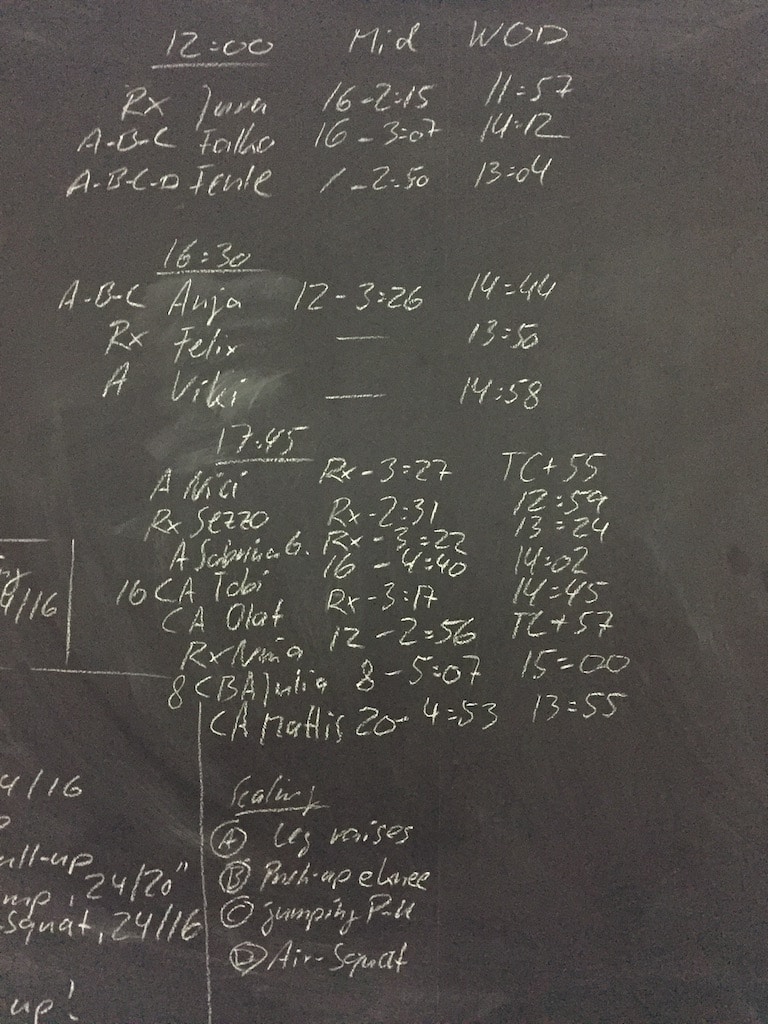 12:00 Mid WOD
Rx 16 - 2:15 11:57
A-B-C Falko 16 - 3:07 14:12
A-B-C-D / - 2:50 13:04
16:30
A-B-C Anja 12 - 3:26 14:44
Rx Felix — 13:50
A Viki — 14:58
17:45
A Nici Rx - 3:27 TC + 55
Rx Sezzo Rx - 2:31 12:59
A Sabrina G. Rx - 3:22 13:24
16 CA Tobi 16 - 4:40 14:02
CA Olaf Rx - 3:17 14:45
Rx Nina 12 - 2:56 TC + 57
8 CBA Julia 8 - 5:07 15:00
CA Mattis 20 - 4:53 13:55
4/16
4/16
ull-up
mp, 24/20"
-Squat, 24/16
up!
Scaling
A Leg raises
B Push-up e knee
C jumping Pull
D Air-Squat